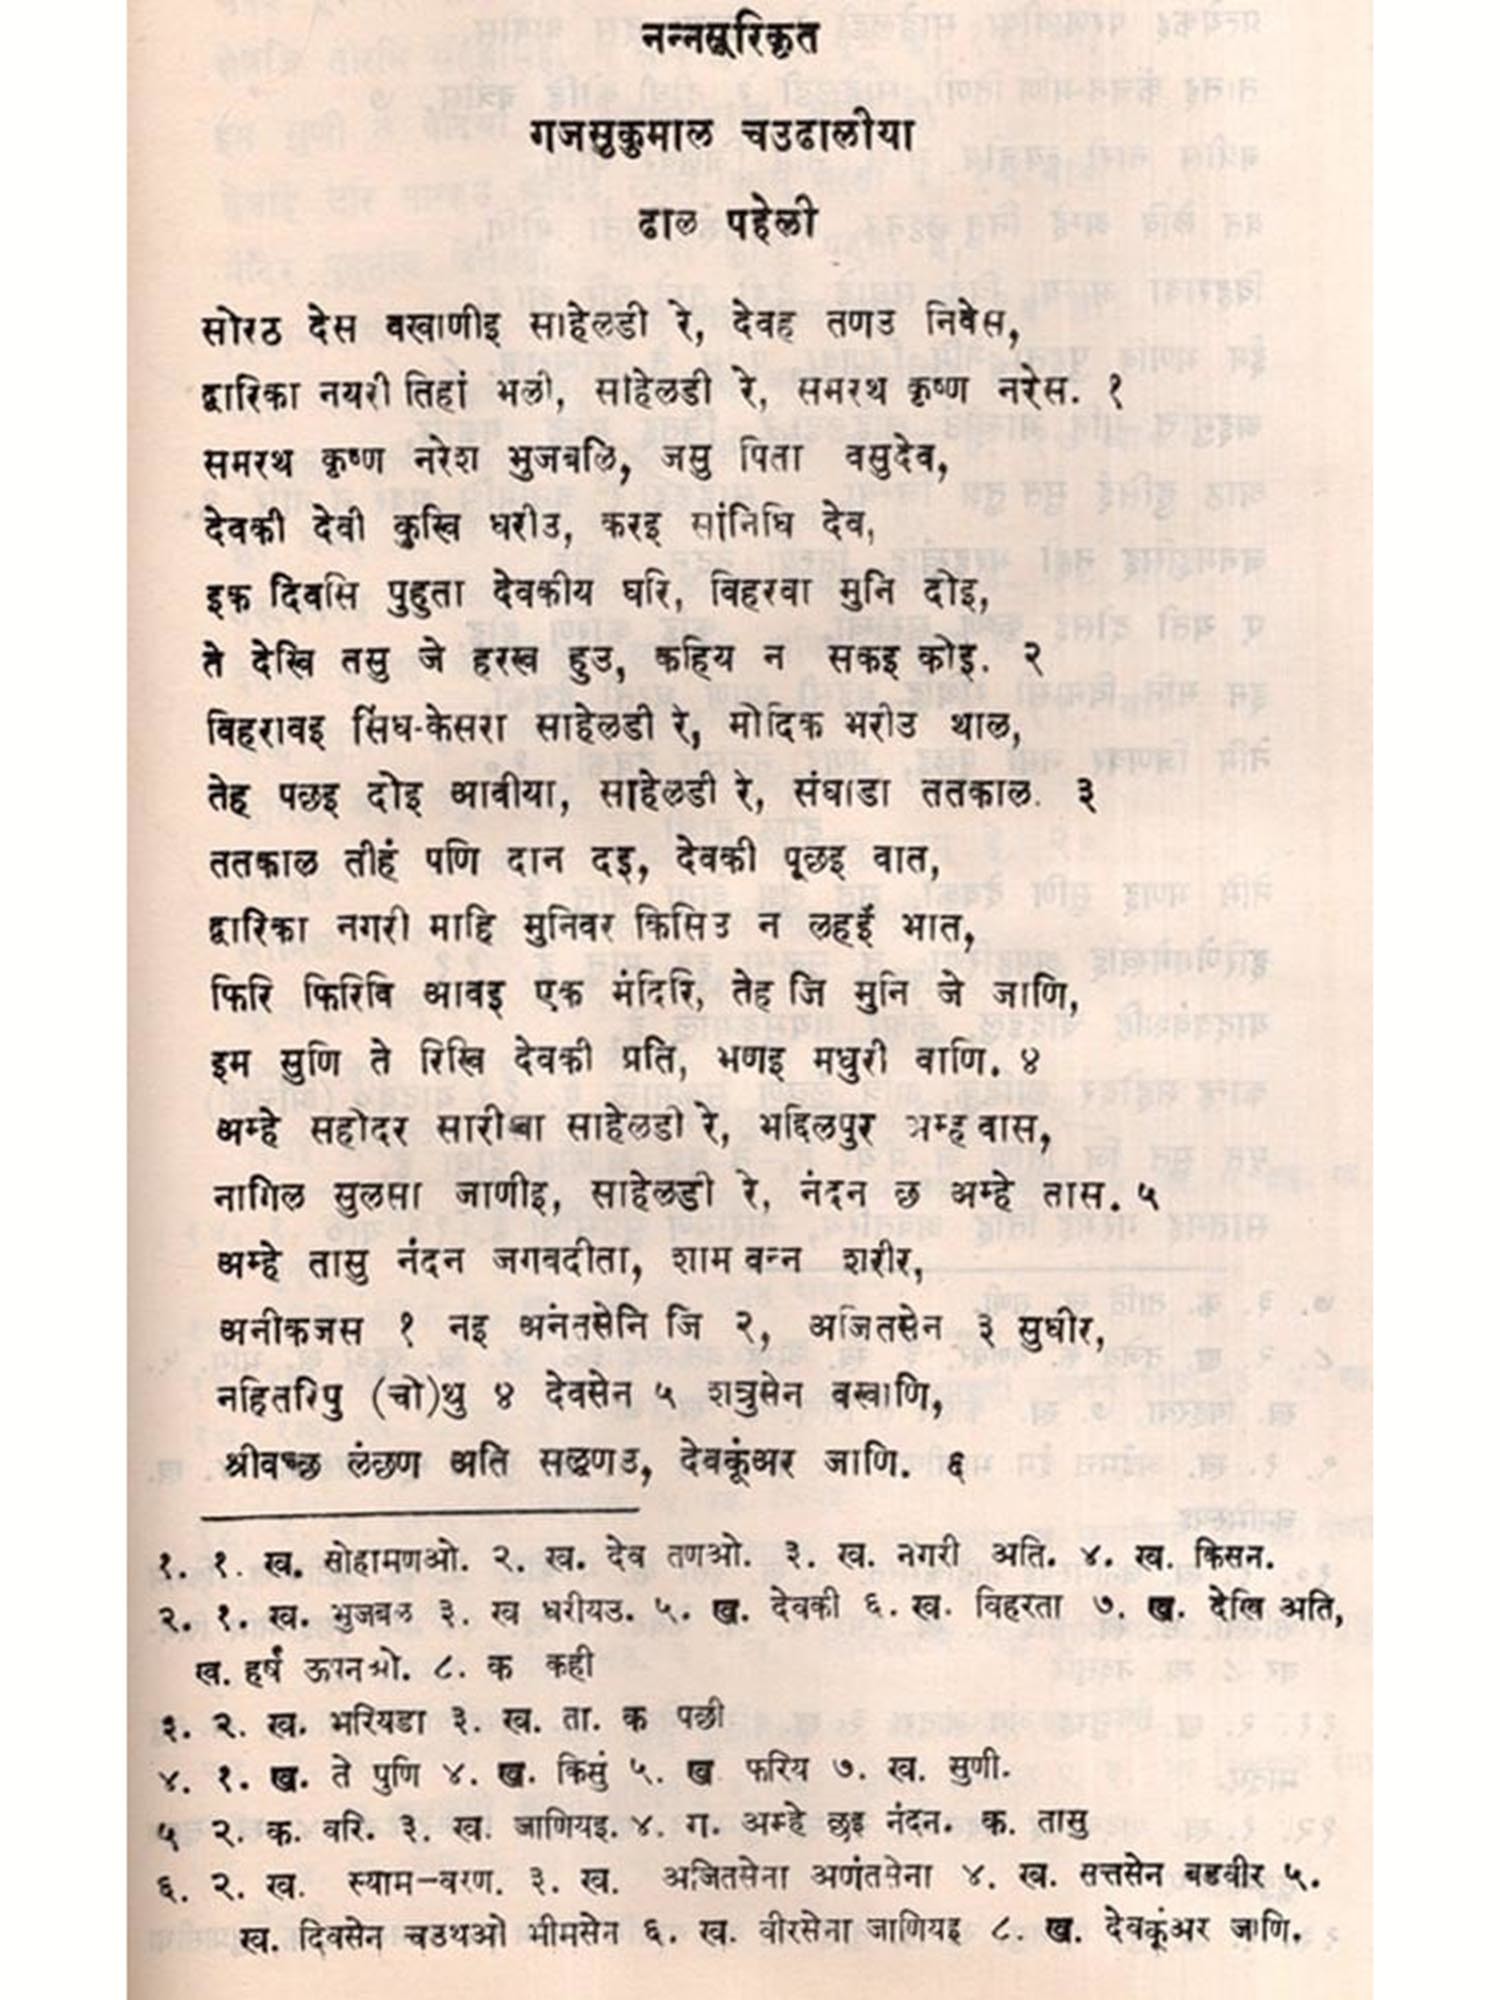 नन्नसूरिकृत
गजसुकुमाल चउढालीया
ढाल पहेली
सोरठ देस वखाणीइ साहेलडी रे, देवह तणउ निवेस,
द्वारिका नयरी तिहां भली, साहेलडी रे, समरथ कृष्ण नरेस. १
समरथ कृष्ण नरेश भुजबलि, जसु पिता वसुदेव,
देवकी देवी कुखि धरीउ, करइ सांनिधि देव,
इक दिवसि पुहुता देवकीय घरि, विहरवा मुनि दोइ,
ते देखि तसु जे हरख हुउ, कहिय न सकइ कोइ. २
विहरावइ सिंघ-केसरा साहेलडी रे, मोदिक भरीउ थाल,
तेह पछइ दोइ आवीया, साहेलडी रे, संघाडा ततकाल. ३
ततकाल तीहं पणि दान दइ, देवकी पूछइ वात,
द्वारिका नगरी माहि मुनिवर किसिउ न लहइँ भात,
फिरि फिरिवि आवइ एक मंदिरि, तेह जि मुनि जे जाणि,
इम सुणि ते रिखि देवकी प्रति, भणइ मधुरी वाणि. ४
अम्हे सहोदर सारीखा साहेलडी रे, भद्दिलपुर अम्ह वास,
नागिल सुलसा जाणीइ, साहेलडी रे, नंदन छ अम्हे तास. ५
अम्हे तासु नंदन जगवदीता, शाम वन्न शरीर,
अनीकजस १ नइ अनंतसेनि जि २, अजितसेन ३ सुधीर,
नहितरिपु (चो)थु ४ देवसेन ५ शत्रुसेन वखाणि,
श्रीवच्छ लंछण अति सलूणउ, देवकूंअर जाणि. ६
१. १. ख. सोहामणओ. २. ख. देव तणओ. ३. ख. नगरी अति. ४. ख. किसन.
२. १. ख. भुजबल ३. ख धरीयउ. ५. ख. देवकी ६. ख. विहरता ७. ख. देखि अति,
ख. हर्षं ऊपनओ. ८. क कही
३. २. ख. भरियडा ३. ख. ता. क पछी
४. १. ख. ते पुणि ४. ख. किसुं ५. ख फरिय ७. ख. सुणी.
५ २. क. वरि. ३. ख. जाणियइ. ४. ग. अम्हे छइ नंदन. क. तासु
६. २. ख. स्याम-वरण. ३. ख. अजितसेना अणंतसेना ४. ख. सत्तसेन बडवीर ५.
ख. दिवसेन चउथओ भीमसेन ६. ख. वीरसेना जाणियइ ८. ख. देवकूंअर जाणि.